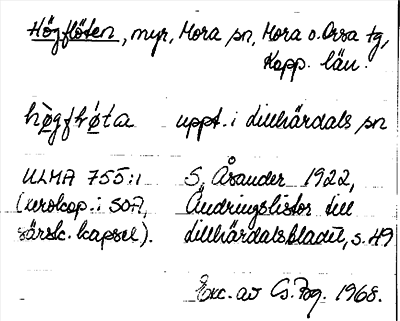 Högflöten, myr, Mora sn, Mora o. Orsa tg,
Kopp. län.
hògfḷóta uppt. i Lillhärdals sn
ULMA 755:1 S. Åsander 1922,
(xerokop. i SOA, Ändringslistor till
särsk. kapsel). Lillhärdalsbladet, s. 49
Exc. av Cs. Fog. 1968.